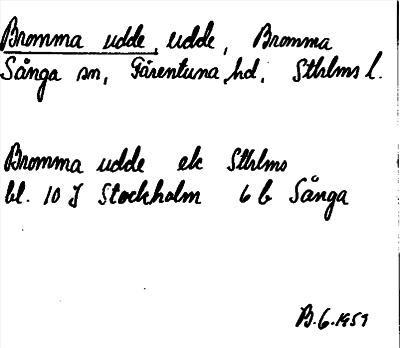 Bromma udde, udde, Bromma
Sånga sn, Färentuna hd, Sthlms l.
Bromma udde ek Sthlms
bl. 10 I Stockholm 6 b Sånga
B.6.1959